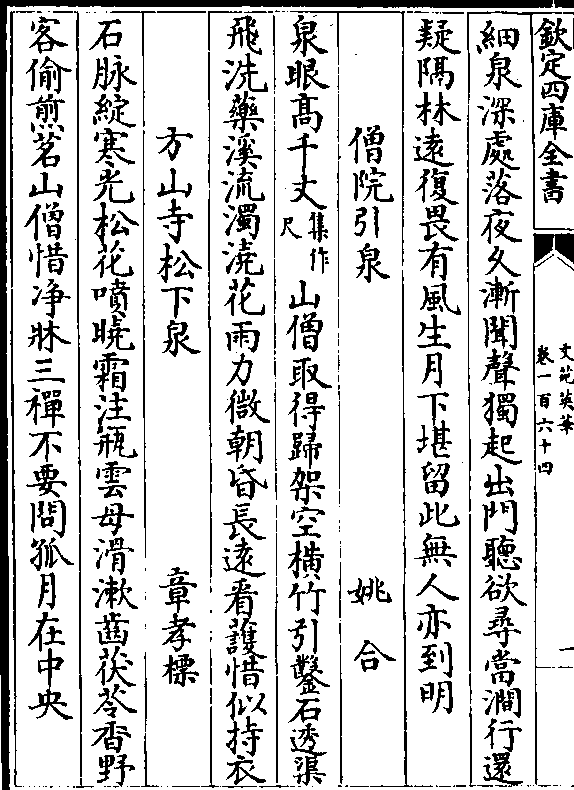 欽定四庫全書
文苑英華
卷一百六十四
細泉深處落夜久漸聞聲獨起出門聽欲尋當澗行還
疑隔林遠復畏有風生月下堪留此無人亦到明
僧院引泉 姚合
泉眼高千丈集作尺山僧取得歸架空横竹引鑿石透渠
飛洗藥溪流濁澆花雨力微朝昏長逺看護惜似持衣
方山寺松下泉 章孝標
石脉綻寒光松花噴曉霜注瓶雲母滑漱齒茯苓香野
客偷煎茗山僧惜浄牀三禪不要問孤月在中央